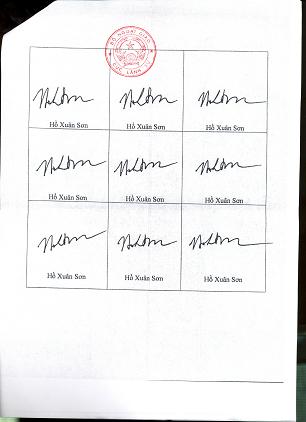 BỘ NGOẠI GIAO
CỤC LÃNH
Hồ Xuân Sơn
Hồ Xuân Sơn
Hồ Xuân Sơn
Hồ Xuân Sơn
Hồ Xuân Sơn
Hồ Xuân Sơn
Hồ Xuân Sơn
Hồ Xuân Sơn
Hồ Xuân Sơn